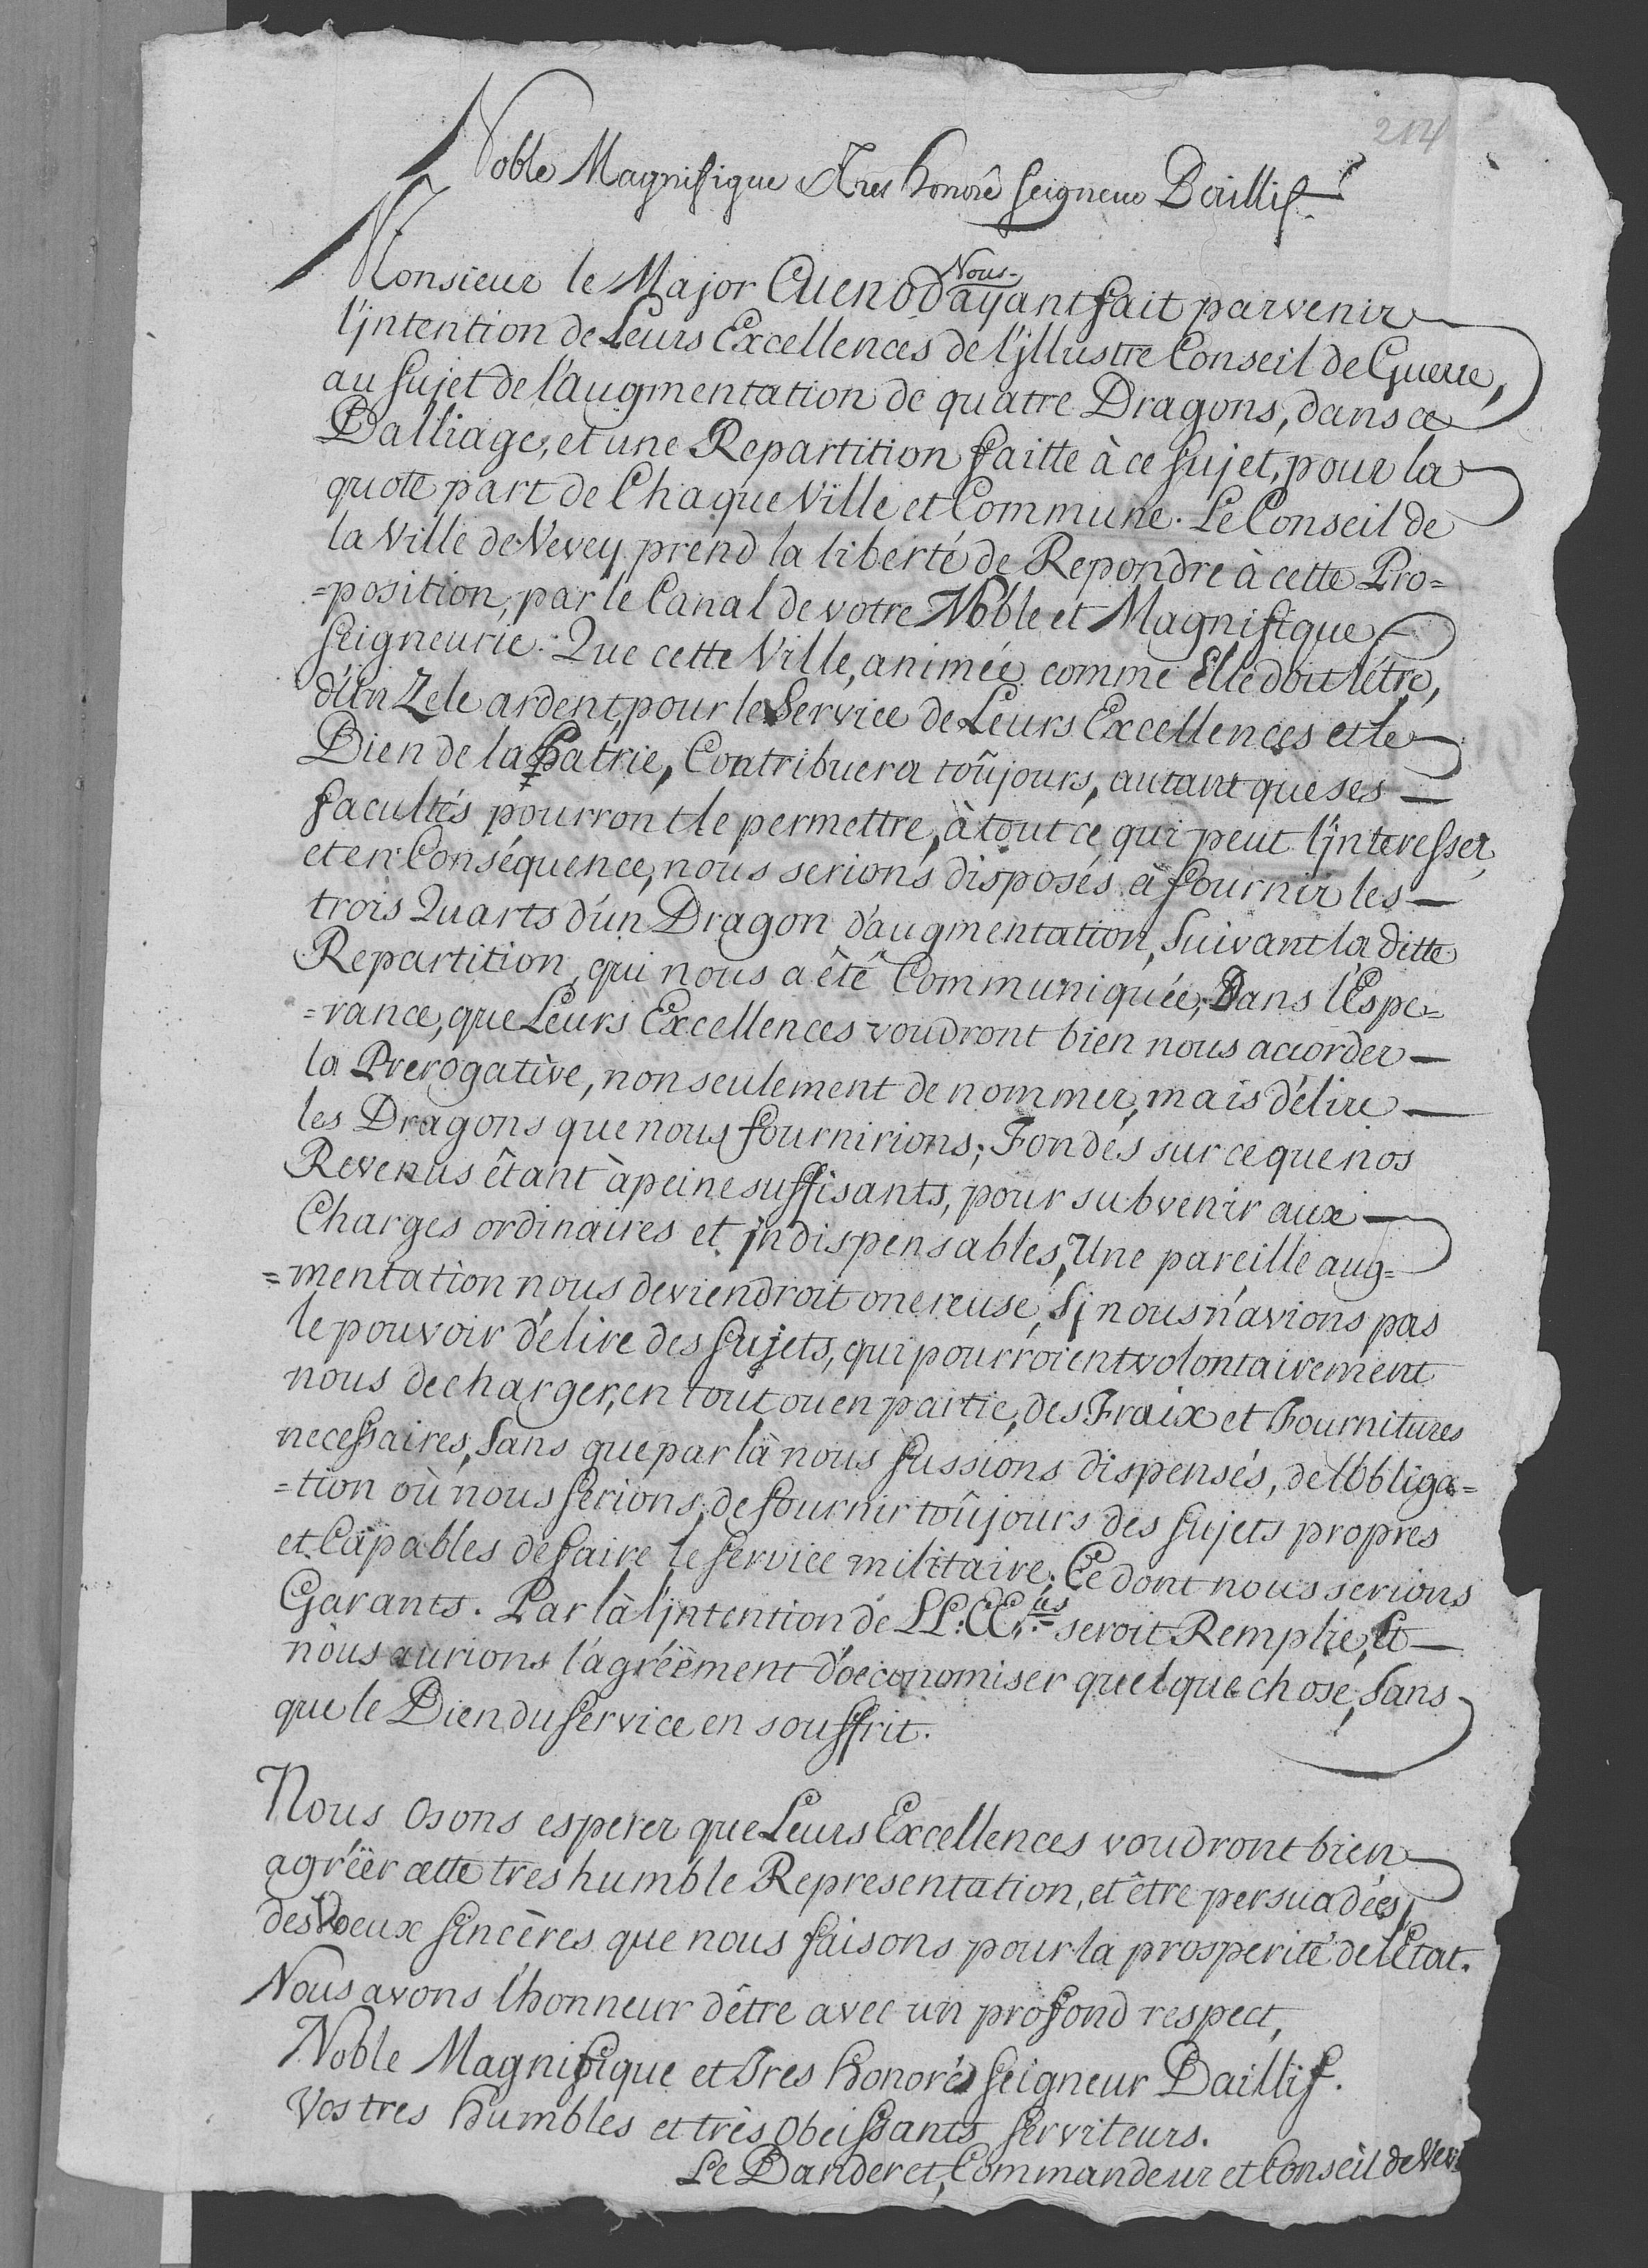 214
Noble Magnifique & Tres honoré Seigneur Baillif
Nous
Monsieur le Major Cuenod ayant fait parvenir
l'jntention de Leurs Excellences de l'jllustre Conseil de Guerre,
au Sujet de l'augmentation de quatre Dragons, dans ce
Balliage, et une Repartition faitte à ce Sujet, pour la
quote part de Chaque Ville et Commune. Le Conseil de
la Ville de Vevey prend la liberté de Repondre à cette Pro=
=position, par le Canal de votre Noble et Magnifique
Seigneurie. Que cette Ville, animée comme Elle doit l'étre,
d'un Zele ardent, pour le Service de Leurs Excellences et le
Bien de la Patrie, Contribuera toûjours, autant que ses
facultés pourront le permettre, à tout ce qui peut l'jnteresser,
et en Conséquence, nous serions disposés à fournir les
trois Quarts d'un Dragon d'augmentation, Suivant la ditte
Repartition, qui nous a êté Communiquée; Dans l'Espe=
=rance, que Leurs Excellences voudront bien nous accorder
la Prerogative, non seulement de nommer, mais d'élire
les Dragons que nous fournirions; Fondés sur ce que nos
Revenus êtant à peine suffisants, pour subvenir aux
Charges ordinaires et jndispensables, Une pareille aug=
=mentation nous deviendroit onereuse, Si nous n'avions pas
le pouvoir d'élire des Sujets, qui pourroient volontairement
nous decharger, en tout ou en partie, des Fraix et Fournitures
necessaires, Sans que par là nous fussions dispensés, de l'Obliga=
=tion où nous Serions, de fournir toûjours des Sujets propres
et Capables de faire le Service militaire; Ce dont nous serions
Garants. Par là l'jntention de LL: EE:ces seroit Remplie, Et
nous aurions l'agréément d'oeconomiser quelque chose, Sans
que le Bien du Service en souffrit.
Nous Osons esperer que Leurs Excellences voudront bien
agréer cette tres humble Representation, et être persuadées,
des Voeux Sincères que nous faisons pour la prosperité de l'Etat.
Nous avons l'honneur d'être avec un profond respect,
Noble Magnifique et Tres honoré Seigneur Baillif.
Vos tres humbles et très Obeissants Serviteurs.
Le Banderet, Commandeur et Conseil de Vev